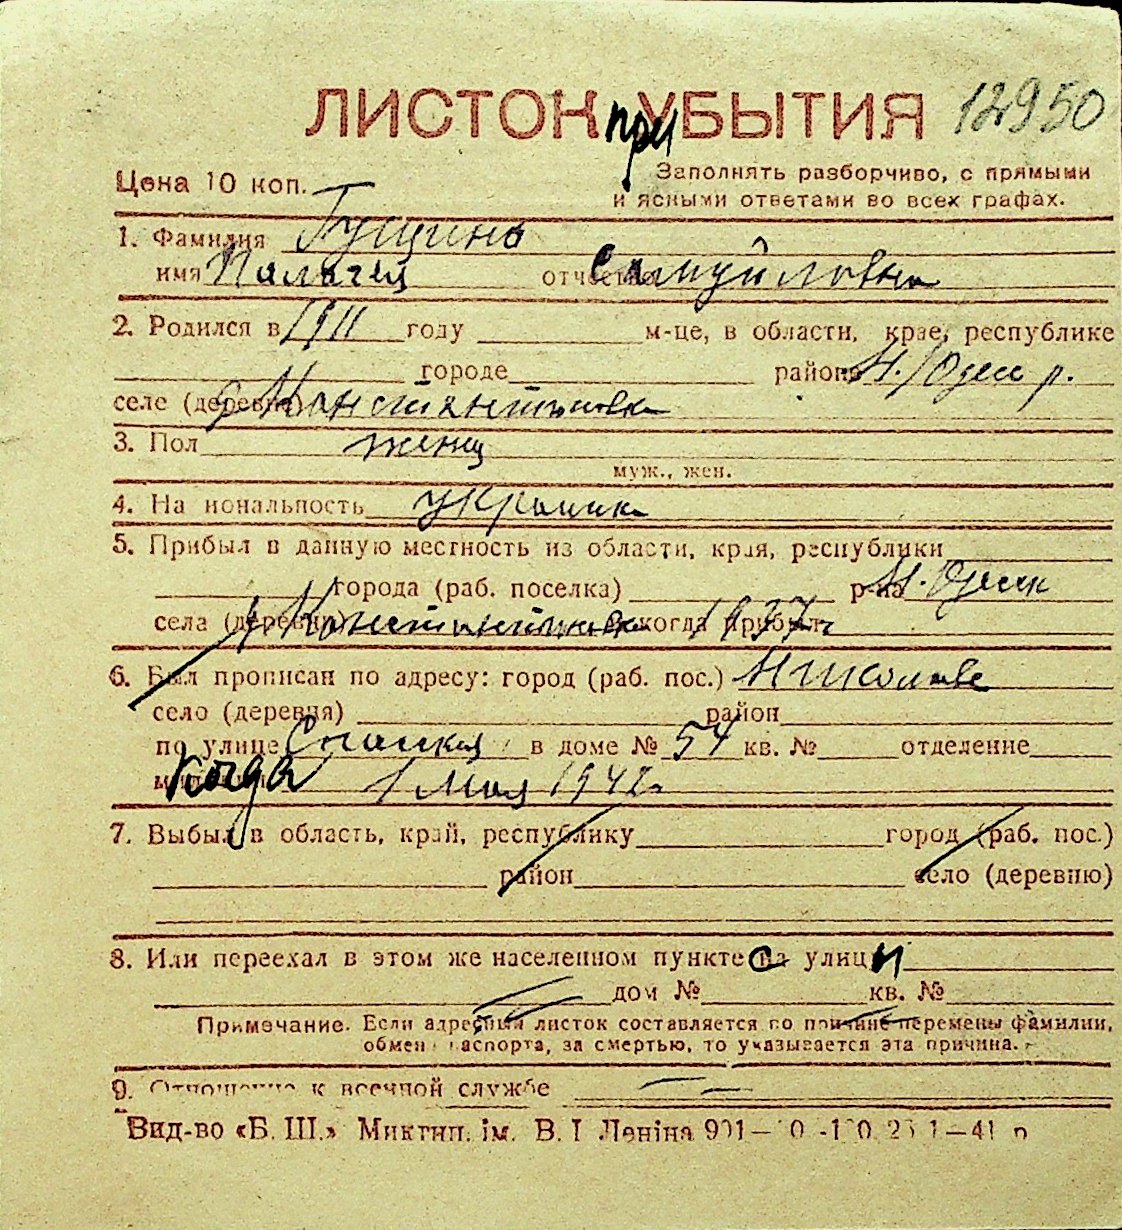 ЛИСТОК при УБЫТИЯ 12950
Цена 10 коп.
Заполнять разборчиво, с прямыми
и ясными ответами во всех графах.
1. Фамилия Гущина
имя Палагея отчество Самуйловна
2. Родился в 1911 году м-це, в области, крае, республике
городе района Н./Одесс р.
селе (деревне) Константиновка
3. Пол женщ
муж., жен.
4. На иональность украинка
5. Прибыл в данную местность из области, края, республики
города (раб. поселка) р-на Н. Одесск
села (деревни) Константиновка когда прибыл 1937 г
6. Был прописан по адресу: город (раб. пос.) Николаеве
село (деревня) район
по улице Спасская в доме № 54 кв. № отделение
когда 1 Мая 1942 г
7. Выбыл в область, край, республику город (раб. пос.)
район село (деревню)
8. Или переехал в этом же населенном пункте с на улицы
дом № кв. №
Примечание. Если адресный листок составляется по причине перемены фамилии,
обмен паспорта, за смертью, то указывается эта причина.
9. Отношение к военной службе
Вид-во «Б. Ш.» Миктип. ім. В. І Леніна